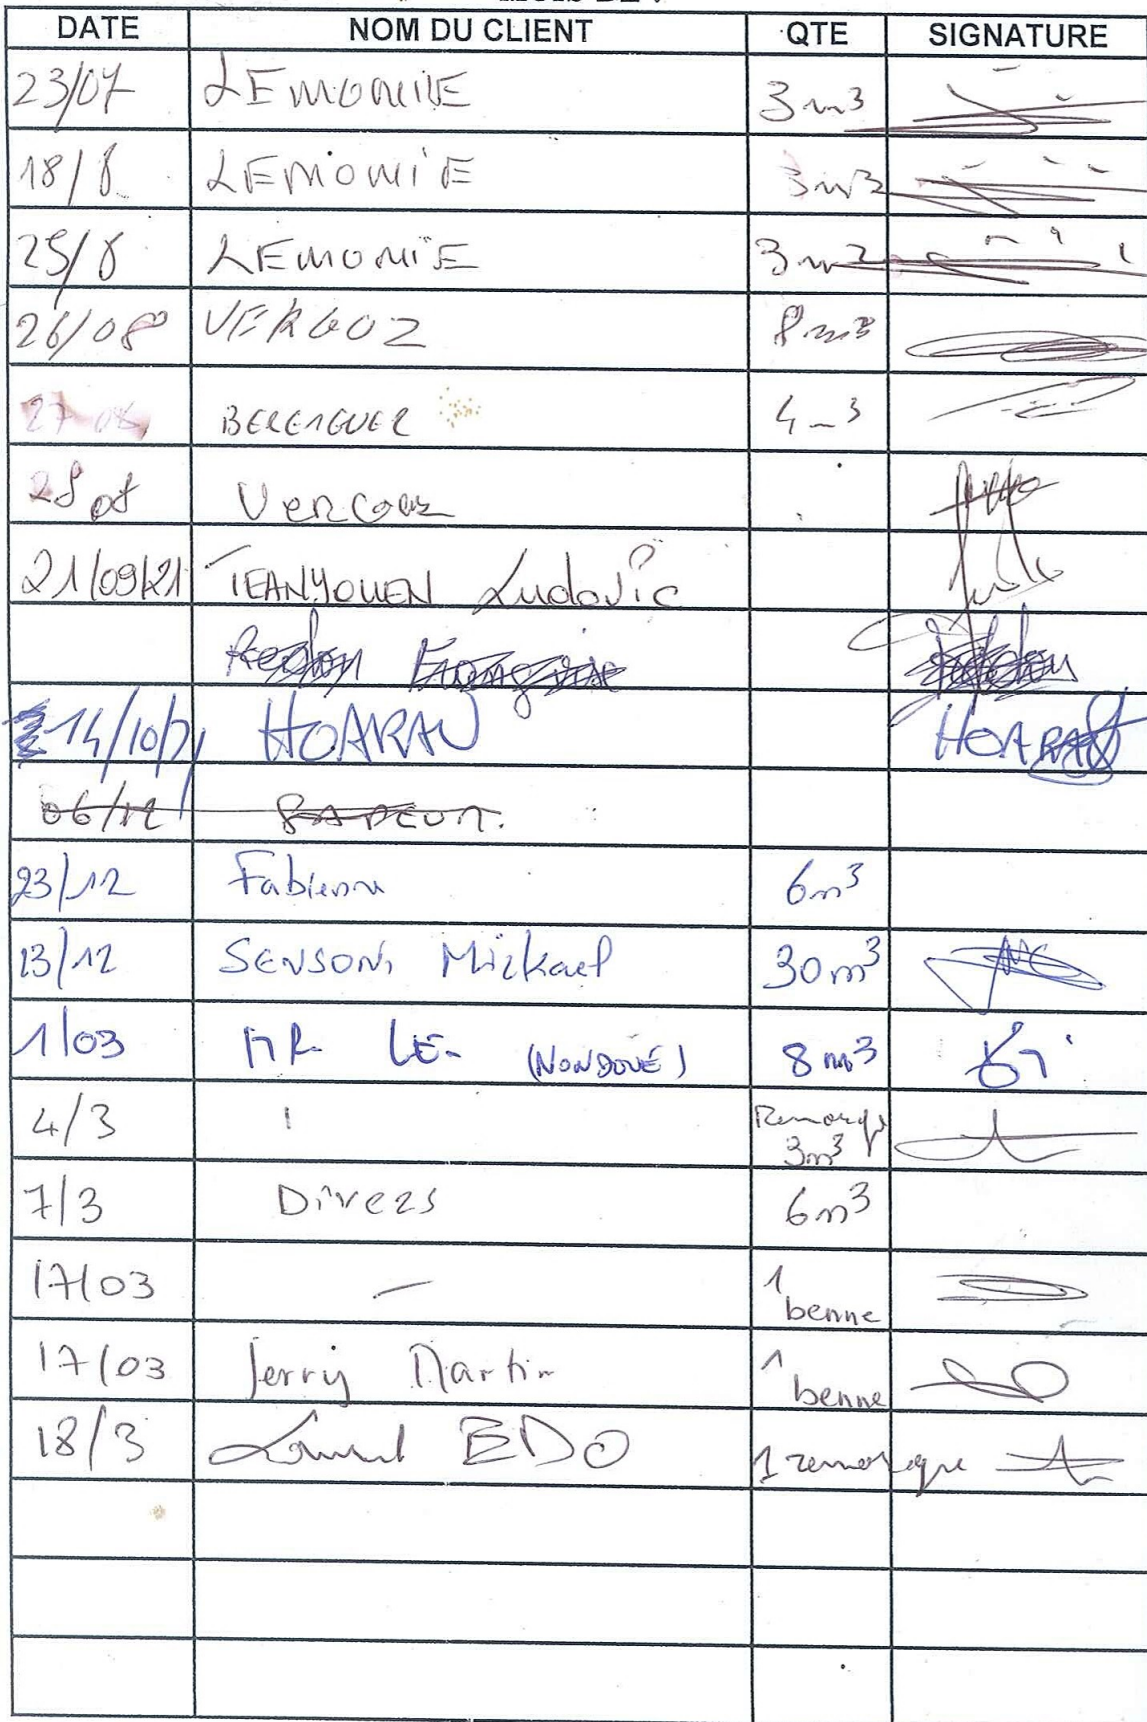 DATE NOM DU CLIENT QTE SIGNATURE
23/07 LEMONIE 3m3
18/8 LEMONIE 3m3
25/8 LEMONIE 3m3
26/08 VERGOZ 8m3
27-08 BERENGUER 4m3
28 08
21/09/21 TEANYOUEN Ludovic
14/10/21 HOARAU HOARAU
06/12
23/12 Fabienne 6m3
13/12 SENSONI Mickael 30m3
1/03 MR LE- (NONDOUÉ) 8m3
4/3 Remorque
3m3
7/3 Divers 6m3
17/03 — 1
benne
17/03 Jerry Martin 1
benne
18/3 EDO 1 remorque